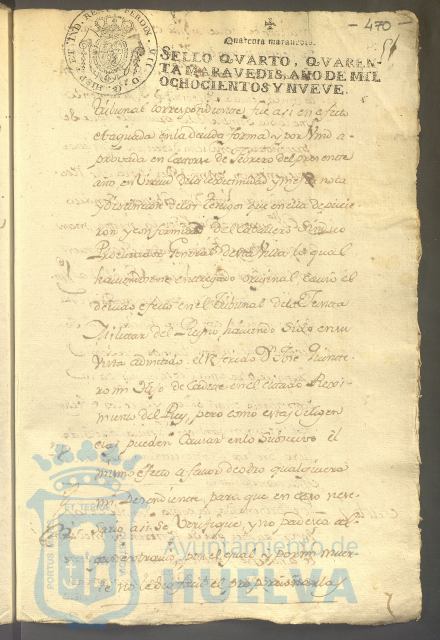 - 470 -
Quarenta maravedis.
SELLO QVARTO, QVAREN-
TA MARAVEDIS, AÑO DE MIL
OCHOCIENTOS Y NVEVE.
tribunal correspondiente fue asi en efecto
evaquada en la devida forma y por Vmd a-
probada en catorse de Febrero del presente
año en virtud de la lexitimidad y nota
y distincion de los testigos que en ella depucie-
ron y conformidad del Caballero Sindico
Procurador General de esta Villa la qual
haviendoseme entregado original causó el
devido efecto en el Tribunal de la
Militar del Reyno, haviendo sido en su
vista admitido el referido Dn José Quinte-
ro mi Hijo de Cadete en el citado Rexi-
miento del Rey, pero como estas diligen
cias pueden causar en lo subcesivo el
mismo efecto a favor de otro qualquiera
mi decendiente, para que en caso nece-
sario asi se verifique, y no padesca al-
gun extravio, por el qual y por mi muer
te no
Ayuntamiento de
HUELVA
PORTUS